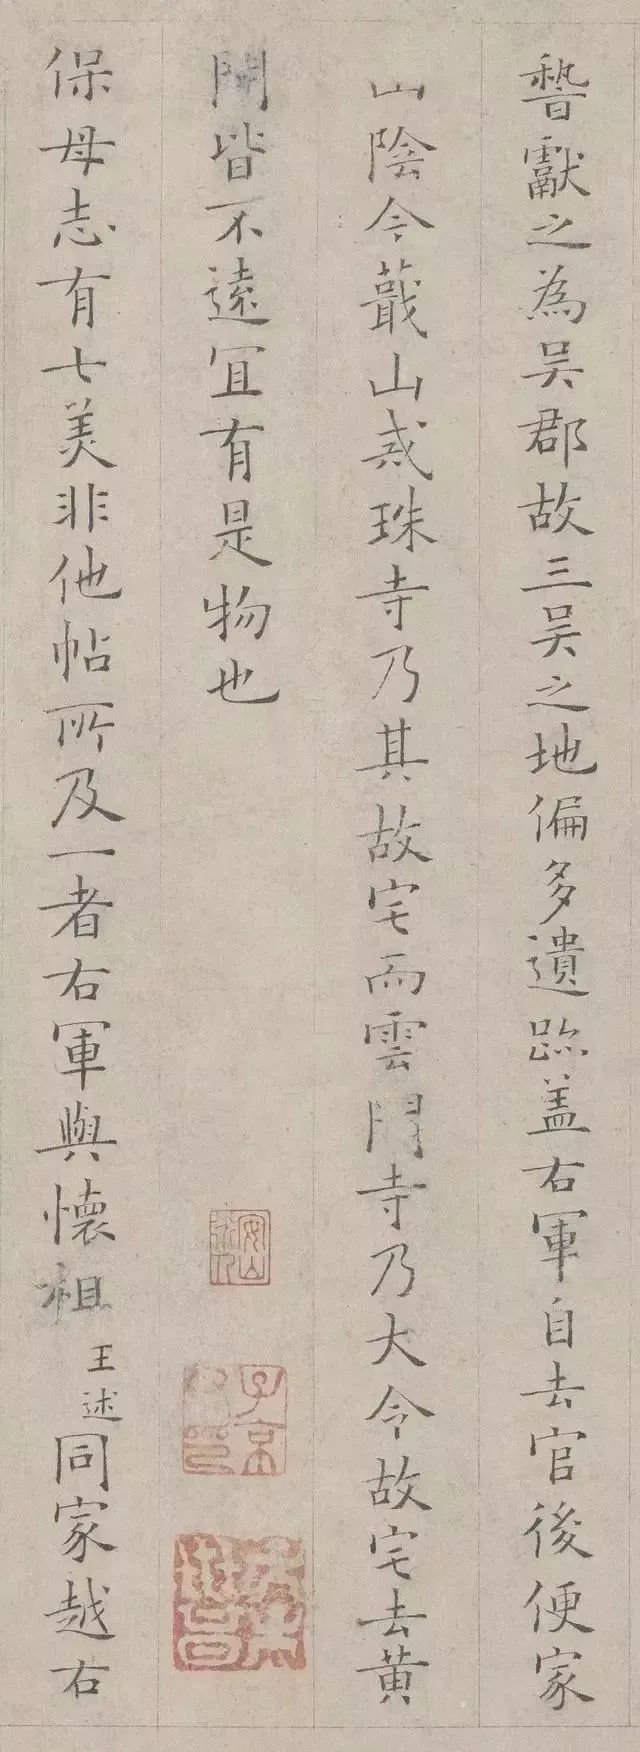 稽獻之為吳郡故三吳之地偏多遺跡盖右軍自去官後便家
山陰今蕺山戒珠寺乃其故宅而雲門寺乃大令故宅去黄
閍皆不遠冝有是物也
保母志有七美非他帖所及一者右軍與懷祖王述同家越右
安山
子京